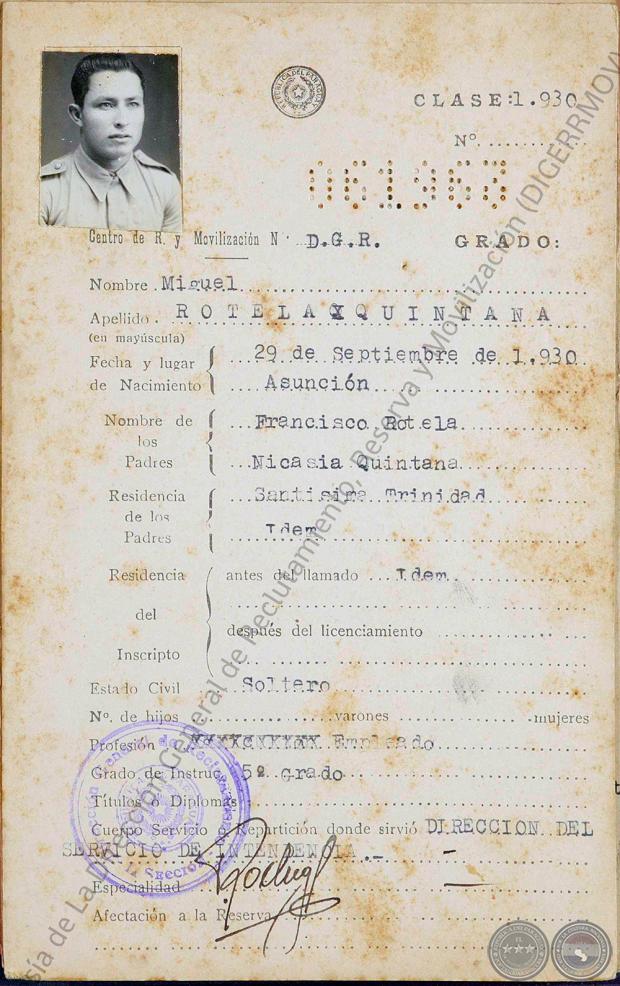 REPUBLICA DEL PARAGUAY
CLASE: 1.930
Nº.
061363
Centro de R. y Movilización Nº. D.G.R. GRADO:
Nombre. Miguel
Apellido. ROTELA QUINTANA
(en mayúscula)
Fecha y lugar de Nacimiento 29 de Septiembre de 1.930
Asunción
Nombre de los Padres Francisco Rotela
Nicasia Quintana
Residencia de los Padres Santisima Trinidad
Idem
Residencia del Inscripto antes del llamado Idem
después del licenciamiento
Estado Civil Soltero
Nº. de hijos varones mujeres
Profesión Empleado
Grado de Instruc 5º grado
Títulos o Diplomas
Cuerpo Servicio o Repartición donde sirvió DIRECCION DEL
SERVICIO DE INTENDENCIA.-
Especialidad
Afectación a la Reserva
sía de La Dirección General de Reclutamiento, Reserva y Movilización (DIGERRMOV)